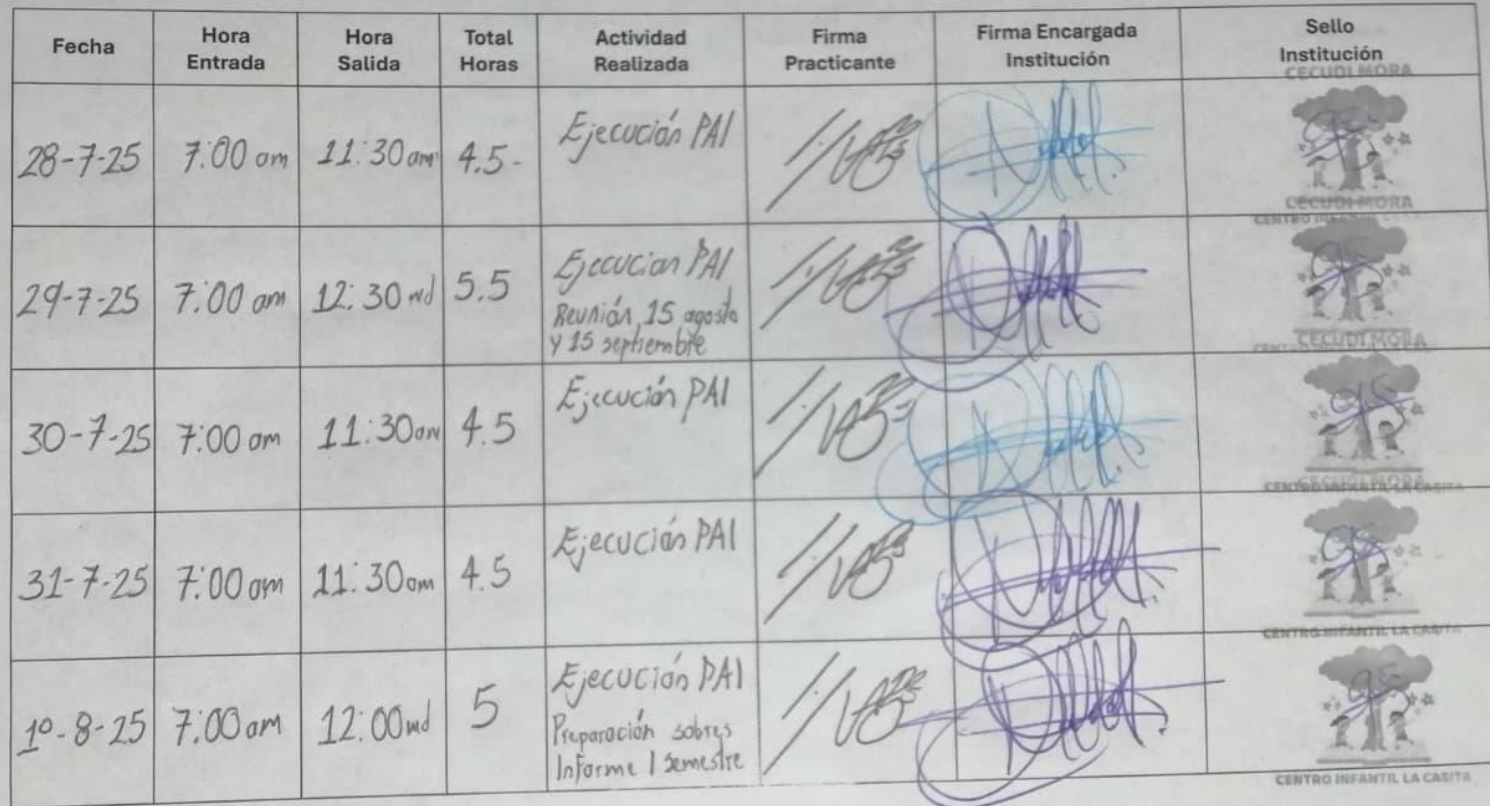 Fecha
Hora Entrada
Hora Salida
Total Horas
Actividad Realizada
Firma Practicante
Firma Encargada Institución
Sello Institución
CECUDI MORA
28-7-25
7:00 am
11:30 am
4.5-
Ejecución PAI
CECUDI MORA
29-7-25
7:00 am
12:30 md
5.5
Ejecucion PAI
Reunión 15 agosto
y 15 septiembre
CECUDI MORA
30-7-25
7:00 am
11:30 am
4.5
Ejecución PAI
CENTRO INFANTIL LA CASITA
31-7-25
7:00 am
11:30 am
4.5
Ejecución PAI
CENTRO INFANTIL LA CASITA
1º-8-25
7:00 am
12:00 md
5
Ejecución PAI
Preparación sobres
Informe I Semestre
CENTRO INFANTIL LA CASITA